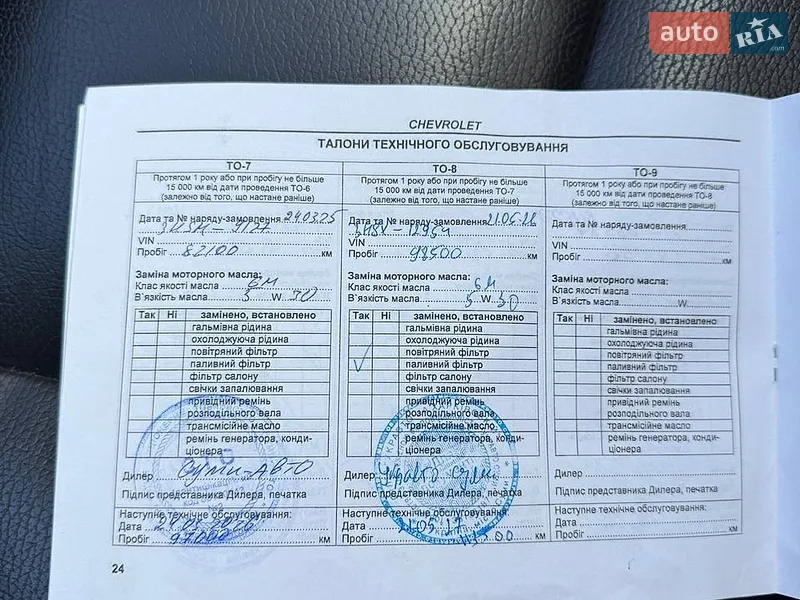 auto RIA .com
CHEVROLET
ТАЛОНИ ТЕХНІЧНОГО ОБСЛУГОВУВАННЯ
ТО-7
Протягом 1 року або при пробігу не більше
15 000 км від дати проведення ТО-6
(залежно від того, що настане раніше)
Дата та № наряду-замовлення 240325
VIN
Пробіг 82100 км
Заміна моторного масла:
Клас якості масла GM
В`язкість масла 5 W 30
Так Ні замінено, встановлено
гальмівна рідина
охолоджуюча рідина
повітряний фільтр
паливний фільтр
фільтр салону
свічки запалювання
привідний ремінь
розподільного вала
трансмісійне масло
ремінь генератора, конди-
ціонера
Дилер Суми-Авто
Підпис представника Дилера, печатка
Наступне технічне обслуговування:
Дата
Пробіг 97000 км
ТО-8
Протягом 1 року або при пробігу не більше
15 000 км від дати проведення ТО-7
(залежно від того, що настане раніше)
Дата та № наряду-замовлення
VIN
Пробіг 98500 км
Заміна моторного масла:
Клас якості масла GM
В`язкість масла 5 W 30
Так Ні замінено, встановлено
гальмівна рідина
охолоджуюча рідина
повітряний фільтр
паливний фільтр
фільтр салону
свічки запалювання
привідний ремінь
розподільного вала
трансмісійне масло
ремінь генератора, конди-
ціонера
Дилер
Підпис представника Дилера, печатка
Наступне технічне обслуговування:
Дата
Пробіг км
ТО-9
Протягом 1 року або при пробігу не більше
15 000 км від дати проведення ТО-8
(залежно від того, що настане раніше)
Дата та № наряду-замовлення
VIN
Пробіг км
Заміна моторного масла:
Клас якості масла
В`язкість масла W
Так Ні замінено, встановлено
гальмівна рідина
охолоджуюча рідина
повітряний фільтр
паливний фільтр
фільтр салону
свічки запалювання
привідний ремінь
розподільного вала
трансмісійне масло
ремінь генератора, конди-
ціонера
Дилер
Підпис представника Дилера, печатка
Наступне технічне обслуговування:
Дата
Пробіг км
24